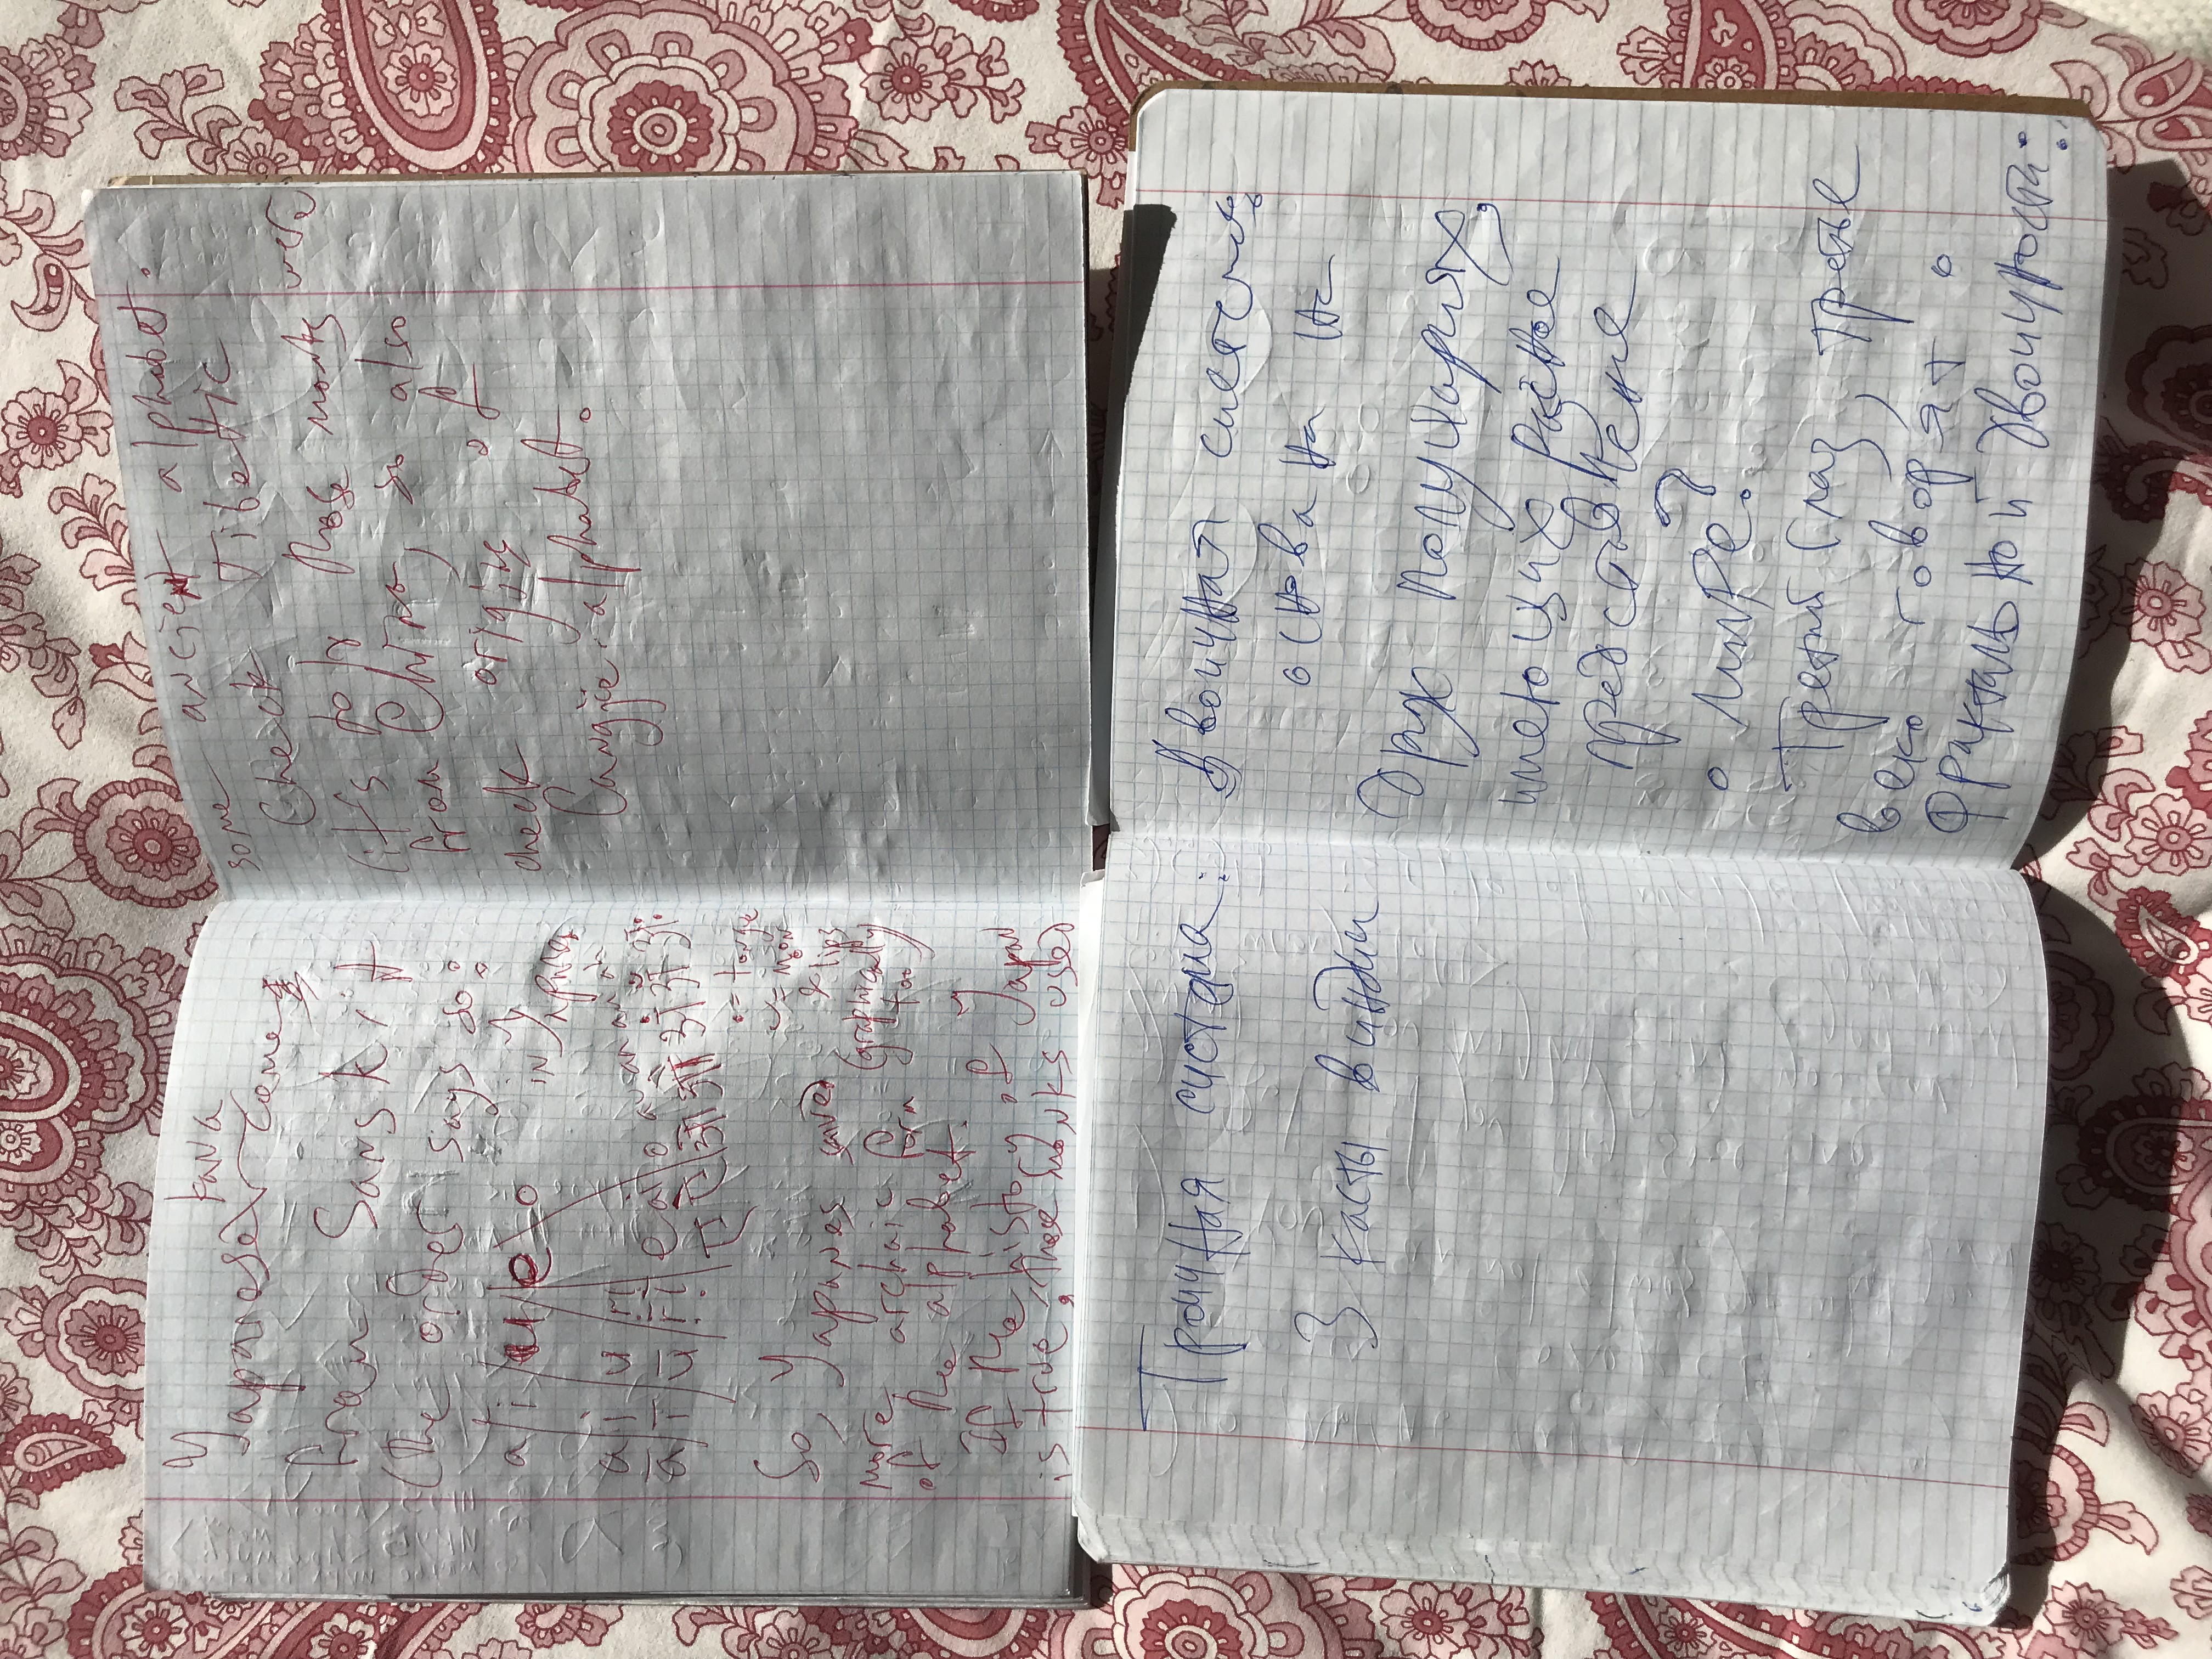 kana
Japanese comes
from Sanskrit
(the order says so:
a/i/u/e\o in Japan
a i u ṛi
ā ī ū ṛī e ai o au an an ah
ए ऐ ओ औ अं अँ अः
• = tongue
= moon
& lips
(graphically
too)
So, Japanes saved
more archaic form
of the alphabet.
If the history of Japan
is true, those monks used
some ancient alphabet.
Check Tibetic
(it's to/r those monks were
from China, so also
check origins of
Cangjie-alphabet.
Троичная система:
3 касты в индии
Двоичная система
основана на
двух полушариях,
имеющих разное
представление
о мире?
Третий глаз, третье
веко говорят о
фрактальной двоичности: